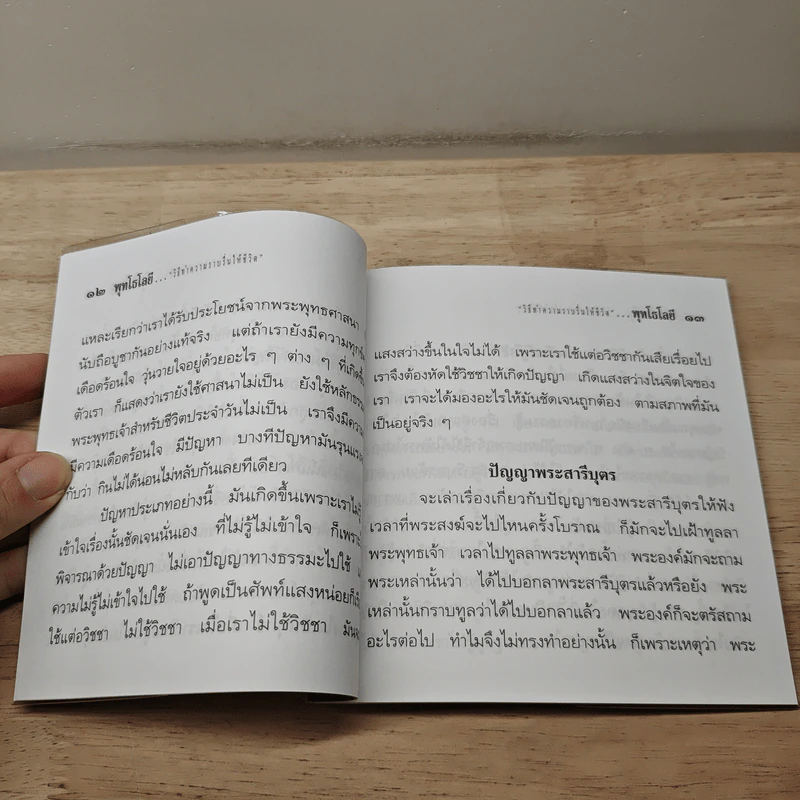 ๑๒ พุทโธโลยี ... "วิธีทำความราบรื่นให้ชีวิต"
แหละเรียกว่าเราได้รับประโยชน์จากพระพุทธศาสนา
นับถือบูชากันอย่างแท้จริง แต่ถ้าเรายังมีความทุกข์
เดือดร้อนใจ วุ่นวายใจอยู่ด้วยอะไร ๆ ต่าง ๆ ที่เกิดขึ้น
ตัวเรา ก็แสดงว่าเรายังใช้ศาสนาไม่เป็น ยังใช้หลักธรรม
พระพุทธเจ้าสำหรับชีวิตประจำวันไม่เป็น เราจึงมีความ
มีความเดือดร้อนใจ มีปัญหา บางทีปัญหามันรุนแรง
กับว่า กินไม่ได้นอนไม่หลับกันเลยทีเดียว
ปัญหาประเภทอย่างนี้ มันเกิดขึ้นเพราะเราไม่
เข้าใจเรื่องนั้นชัดเจนนั่นเอง ที่ไม่รู้ไม่เข้าใจ ก็เพราะ
พิจารณาด้วยปัญญา ไม่เอาปัญญาทางธรรมะไปใช้
ความไม่รู้ไม่เข้าใจไปใช้ ถ้าพูดเป็นศัพท์แสงหน่อยก็
ใช้แต่อวิชชา ไม่ใช้วิชชา เมื่อเราไม่ใช้วิชชา
"วิธีทำความราบรื่นให้ชีวิต" ... พุทโธโลยี ๑๓
แสงสว่างขึ้นในใจไม่ได้ เพราะเราใช้แต่อวิชชากันเสียเรื่อยไป
เราจึงต้องหัดใช้วิชชาให้เกิดปัญญา เกิดแสงสว่างในจิตใจของ
เรา เราจะได้มองอะไรให้มันชัดเจนถูกต้อง ตามสภาพที่มัน
เป็นอยู่จริง ๆ
ปัญญาพระสารีบุตร
จะเล่าเรื่องเกี่ยวกับปัญญาของพระสารีบุตรให้ฟัง
เวลาที่พระสงฆ์จะไปไหนครั้งโบราณ ก็มักจะไปเฝ้าทูลลา
พระพุทธเจ้า เวลาไปทูลลาพระพุทธเจ้า พระองค์มักจะถาม
พระเหล่านั้นว่า ได้ไปบอกลาพระสารีบุตรแล้วหรือยัง พระ
เหล่านั้นกราบทูลว่าได้ไปบอกลาแล้ว พระองค์ก็จะตรัสถาม
อะไรต่อไป ทำไมจึงไม่ทรงทำอย่างนั้น ก็เพราะเหตุว่า พระ